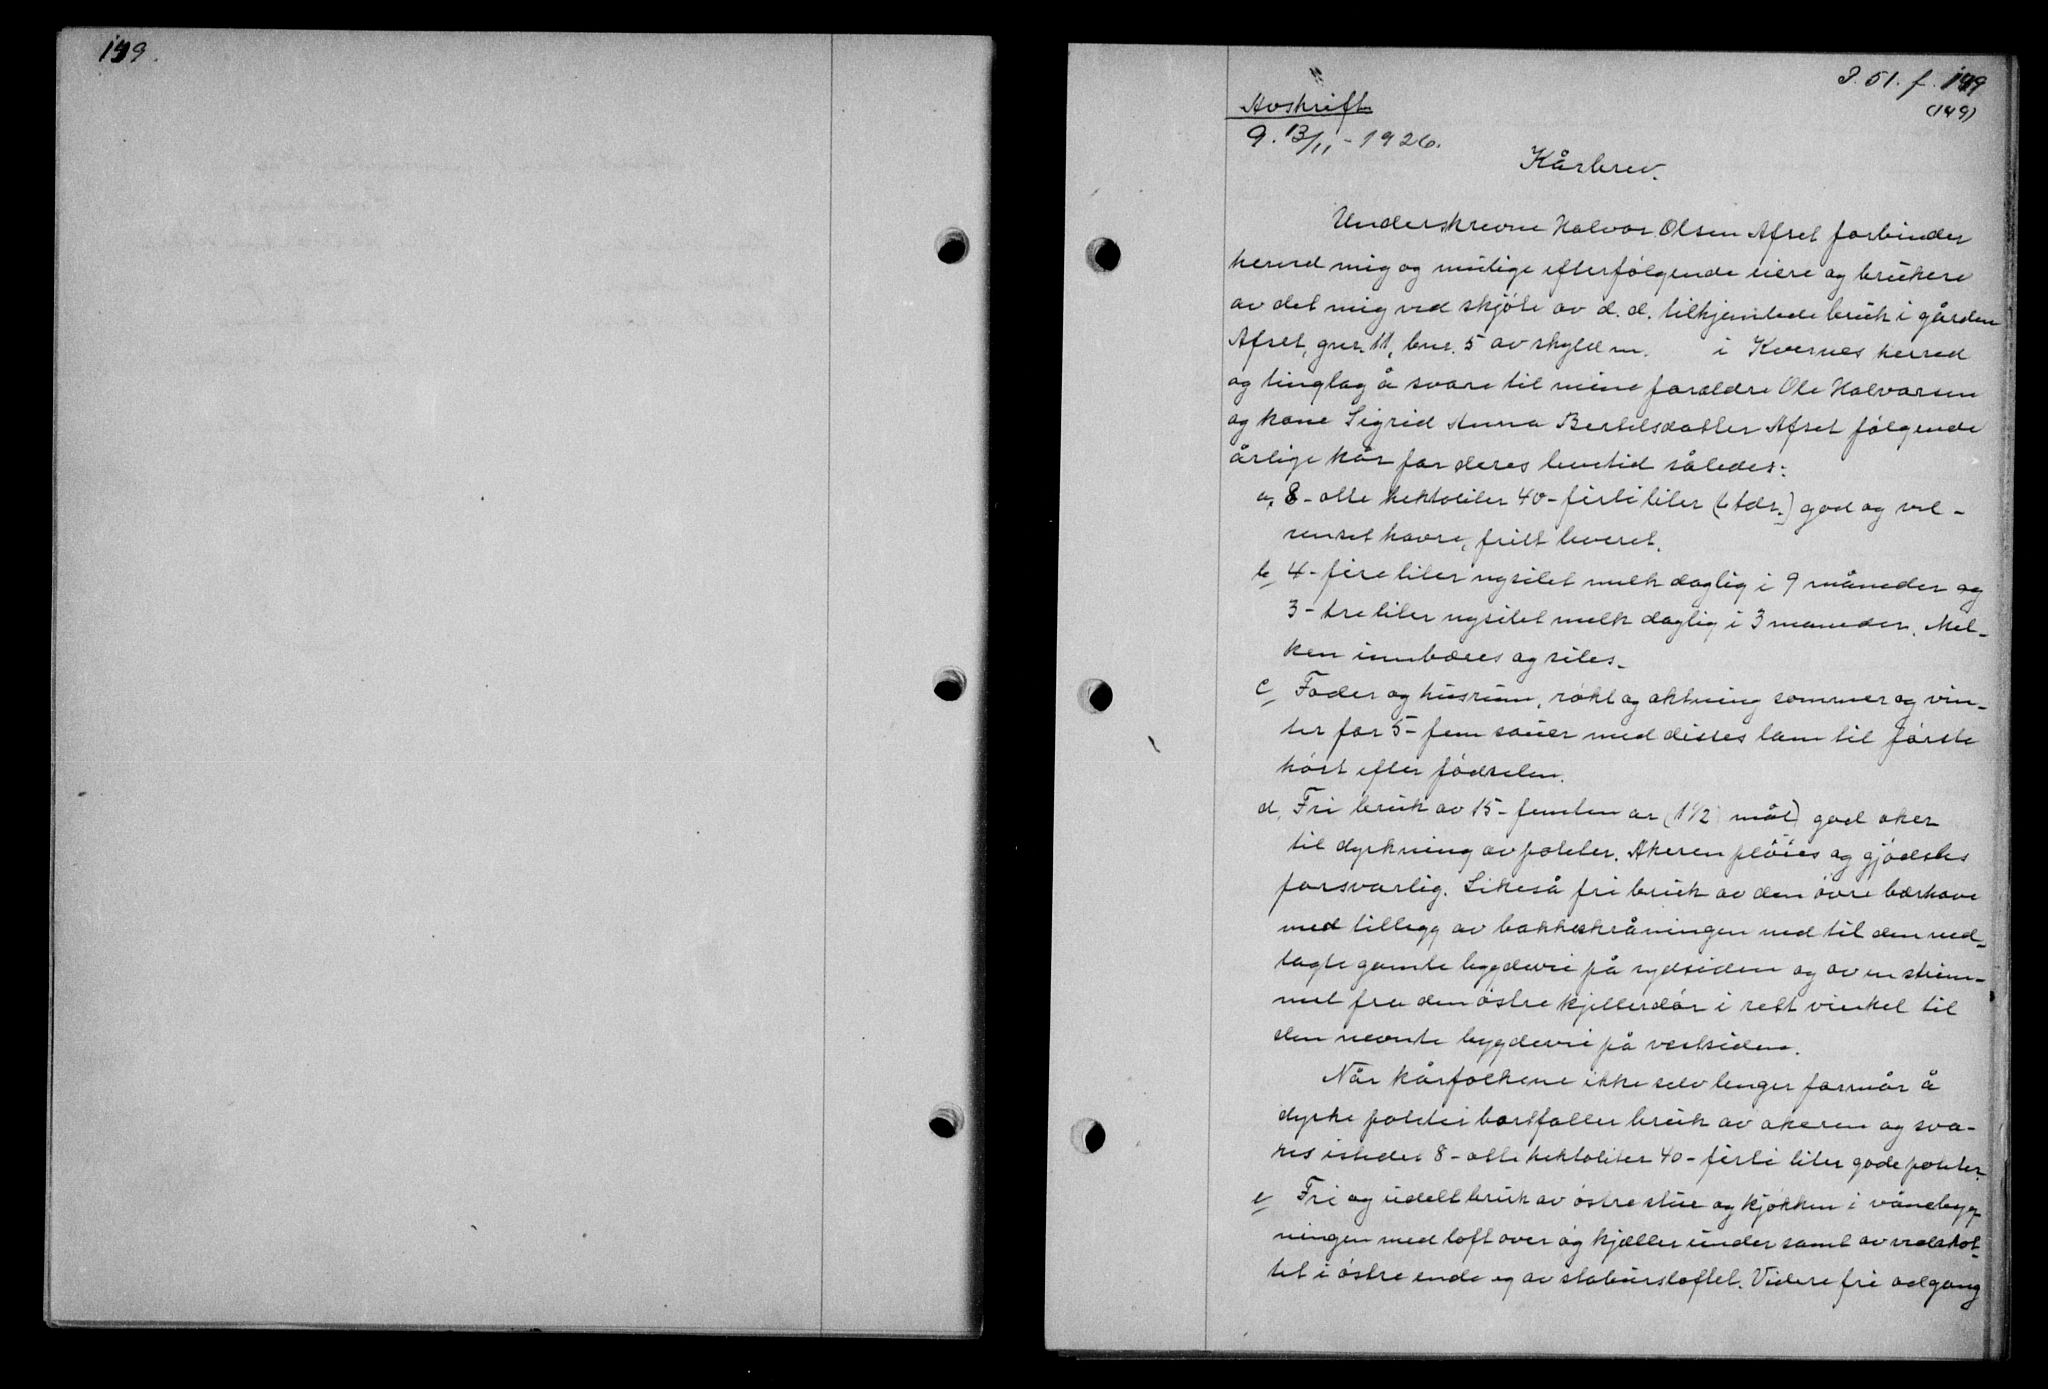 149.
P. 51. f. 149
(149)
Avskrift
9. 13/11 - 1926.
Kårbrev.
Underskrevne Halvor Olsen Afset forbinder
herved mig og mulige efterfølgende eiere og brukere
av det mig ved skjöte av d. d. tilhjemlede bruk i gården
Afset, gnr. 11, bnr. 5 av skyld m. i Kvernes herred
og tinglag å svare til mine foreldre Ole Halvorsen
og kone Sigrid Anna Bertelsdatter Afset følgende
årlige kår for deres levetid således:
a, 8 - otte hektoliter 40 - firti liter (6 tdr.) god og vel-
renset havre, fritt leveret.
b, 4 - fire liter nysilet melk daglig i 9 måneder og
3 - tre liter nysilet melk daglig i 3 måneder. Mel-
ken innbæres og siles.
c, Foder og husrum, røkt og aktning sommer og vin-
ter for 5 - fem sauer med disses lam til første
höst efter födselen.
d, Fri bruk av 15 - femten ar (1 1/2 mål) god aker
til dyrkning av poteter. Akeren plöies og gjödsles
forsvarlig. Likeså fri bruk av den övre bærhave
med tillegg av bakkeskråningen ned til den ned-
lagte gamle bygdevei på sydsiden og av en strim-
mel fra den östre kjellerdör i rett vinkel til
den nevnte bygdevei på vestsiden.
Når kårfolkene ikke selv lenger formår å
dyrke poteter bortfaller bruk av akeren og sva-
res istedet 8 - otte hektoliter 40 - firti liter gode poteter.
e, Fri og udelt bruk av östre stue og kjökken i vånebyg-
ningen med loft over og kjæller under samt av vedskot-
tet i östre ende og av stabursloftet. Videre fri adgang